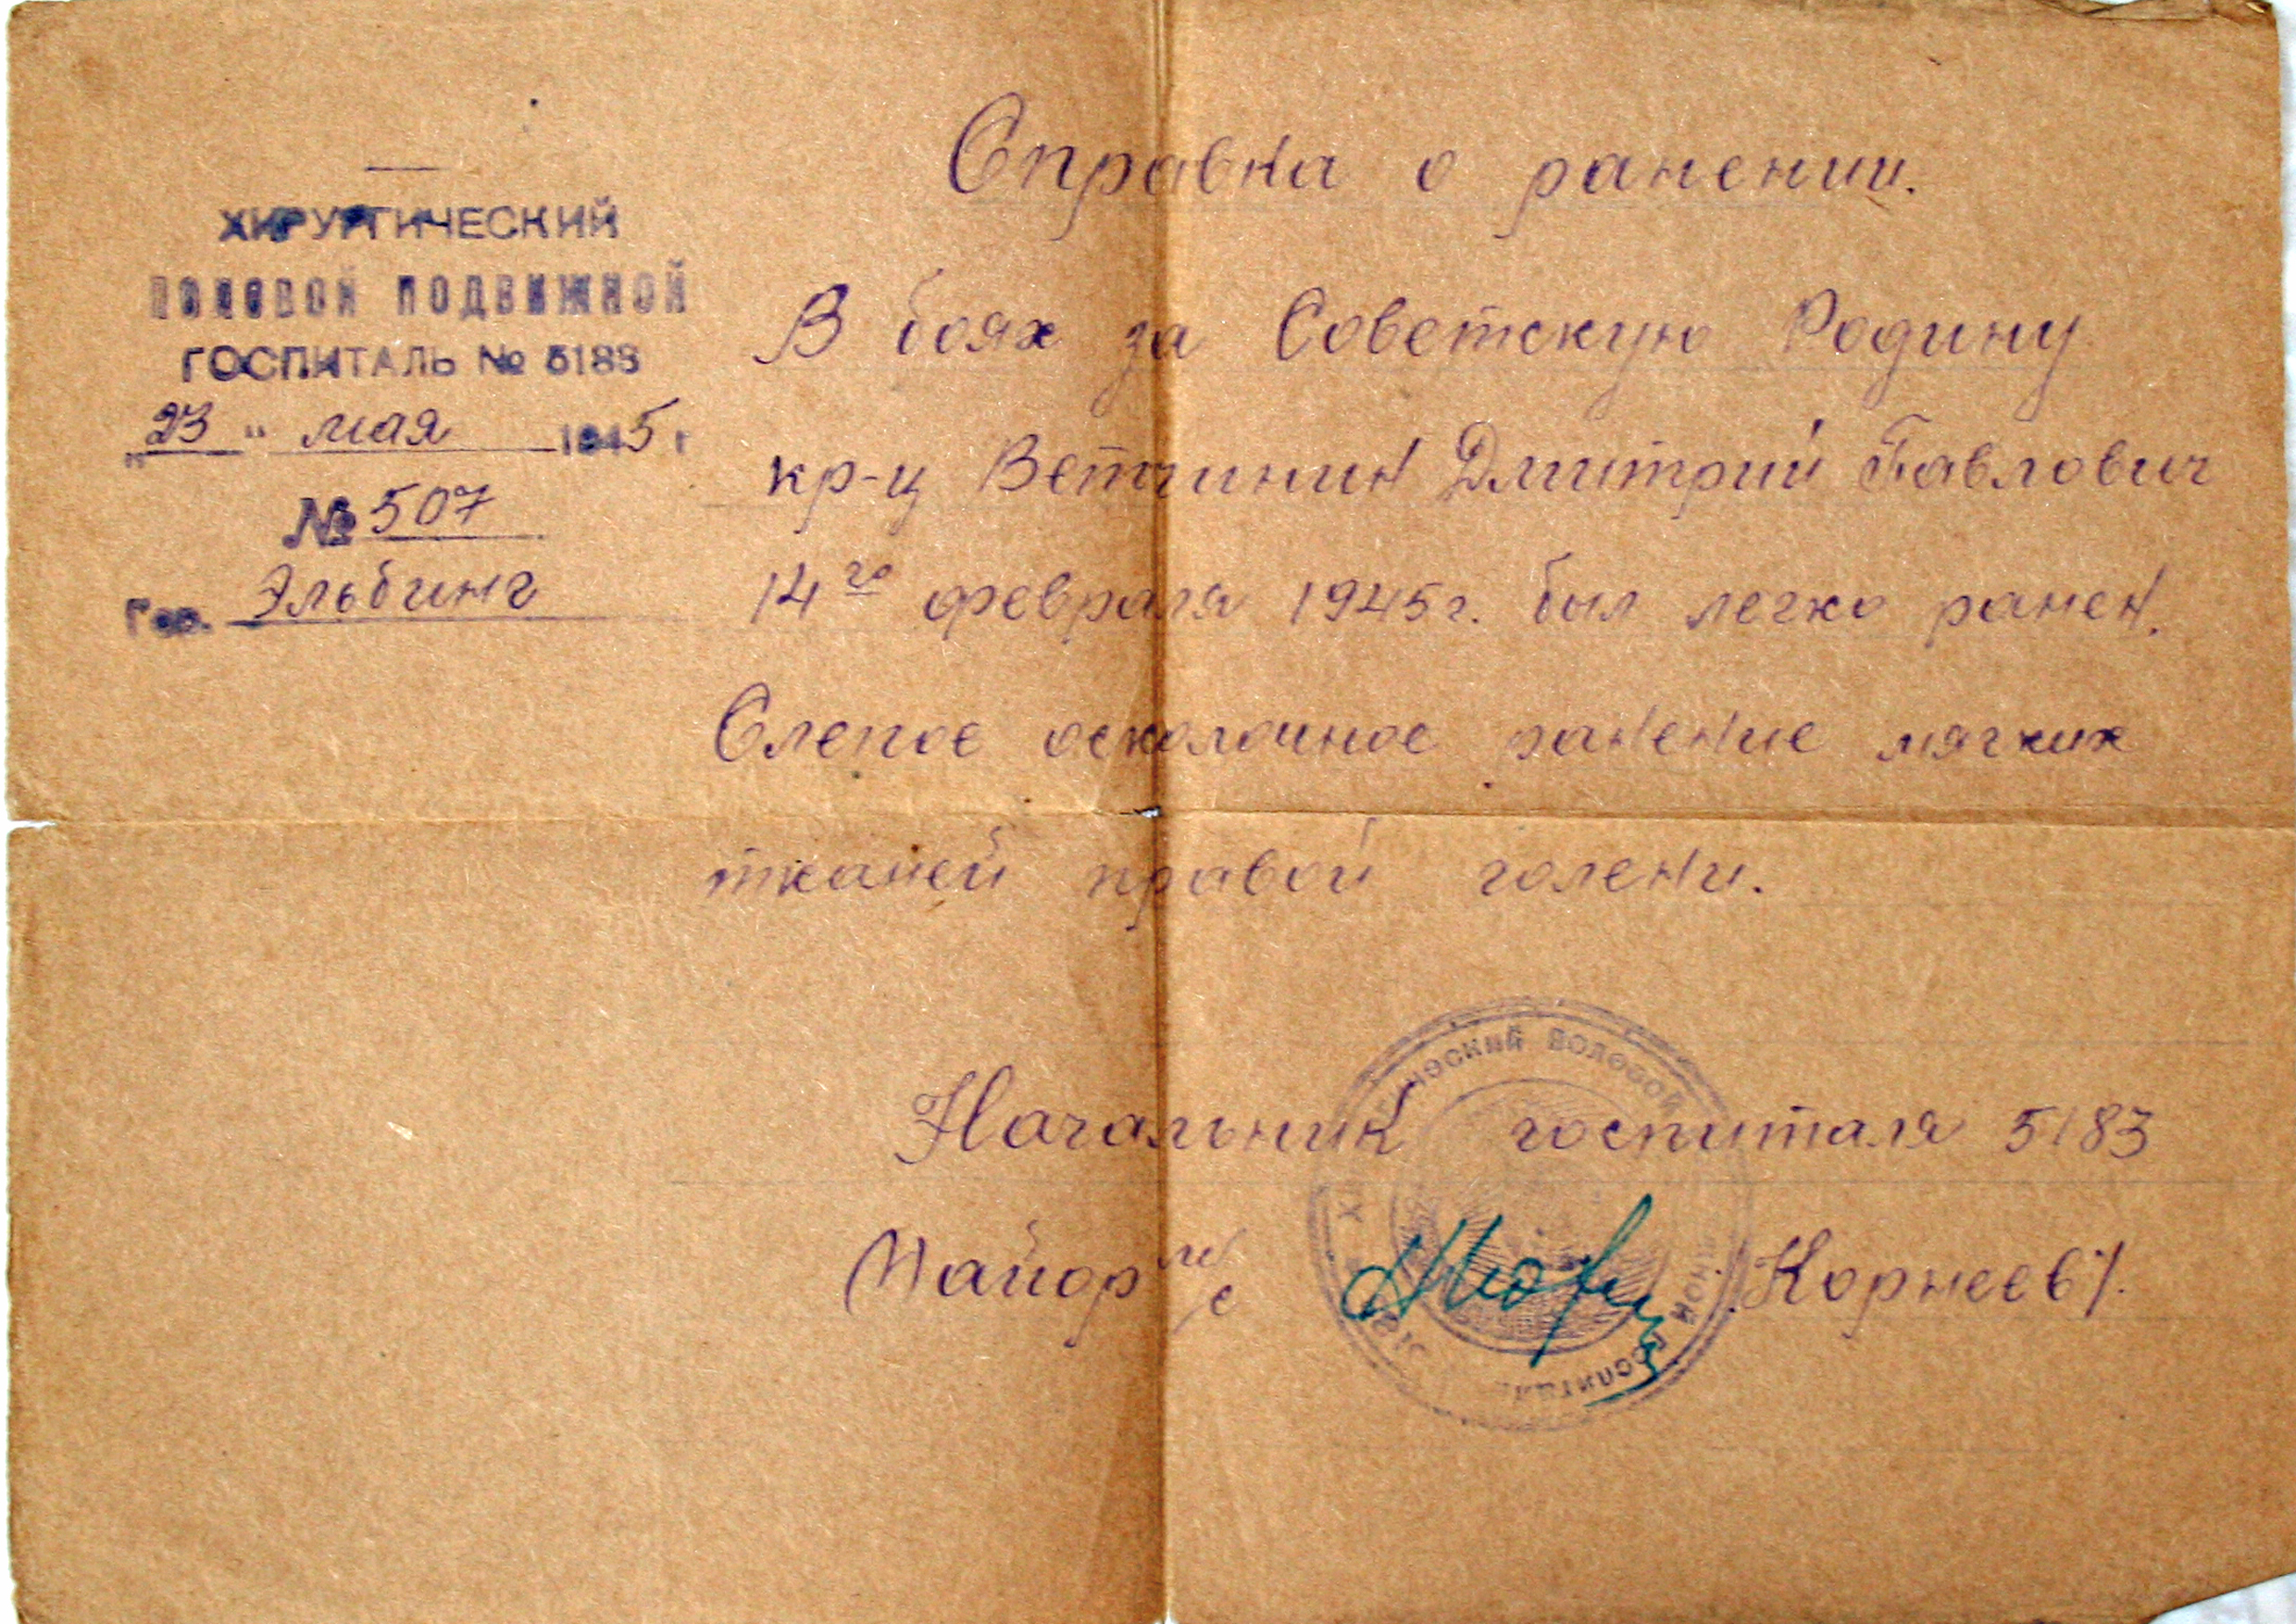 ХИРУРГИЧЕСКИЙ
ПОЛЕВОЙ ПОДВИЖНОЙ
ГОСПИТАЛЬ № 5183
„23" мая 1945 г
№ 507
Гор. Эльбинг
Справка о ранении.
В боях за Советскую Родину
кр-ц Ветчинин Дмитрий Павлович
14го февраля 1945г. был легко ранен.
Слепое осколочное ранение мягких
тканей правой голени.
Начальник госпиталя 5183
Майор м/с /Корнеев/.
ПОЛЕВОЙ
ГОСПИТАЛЬ